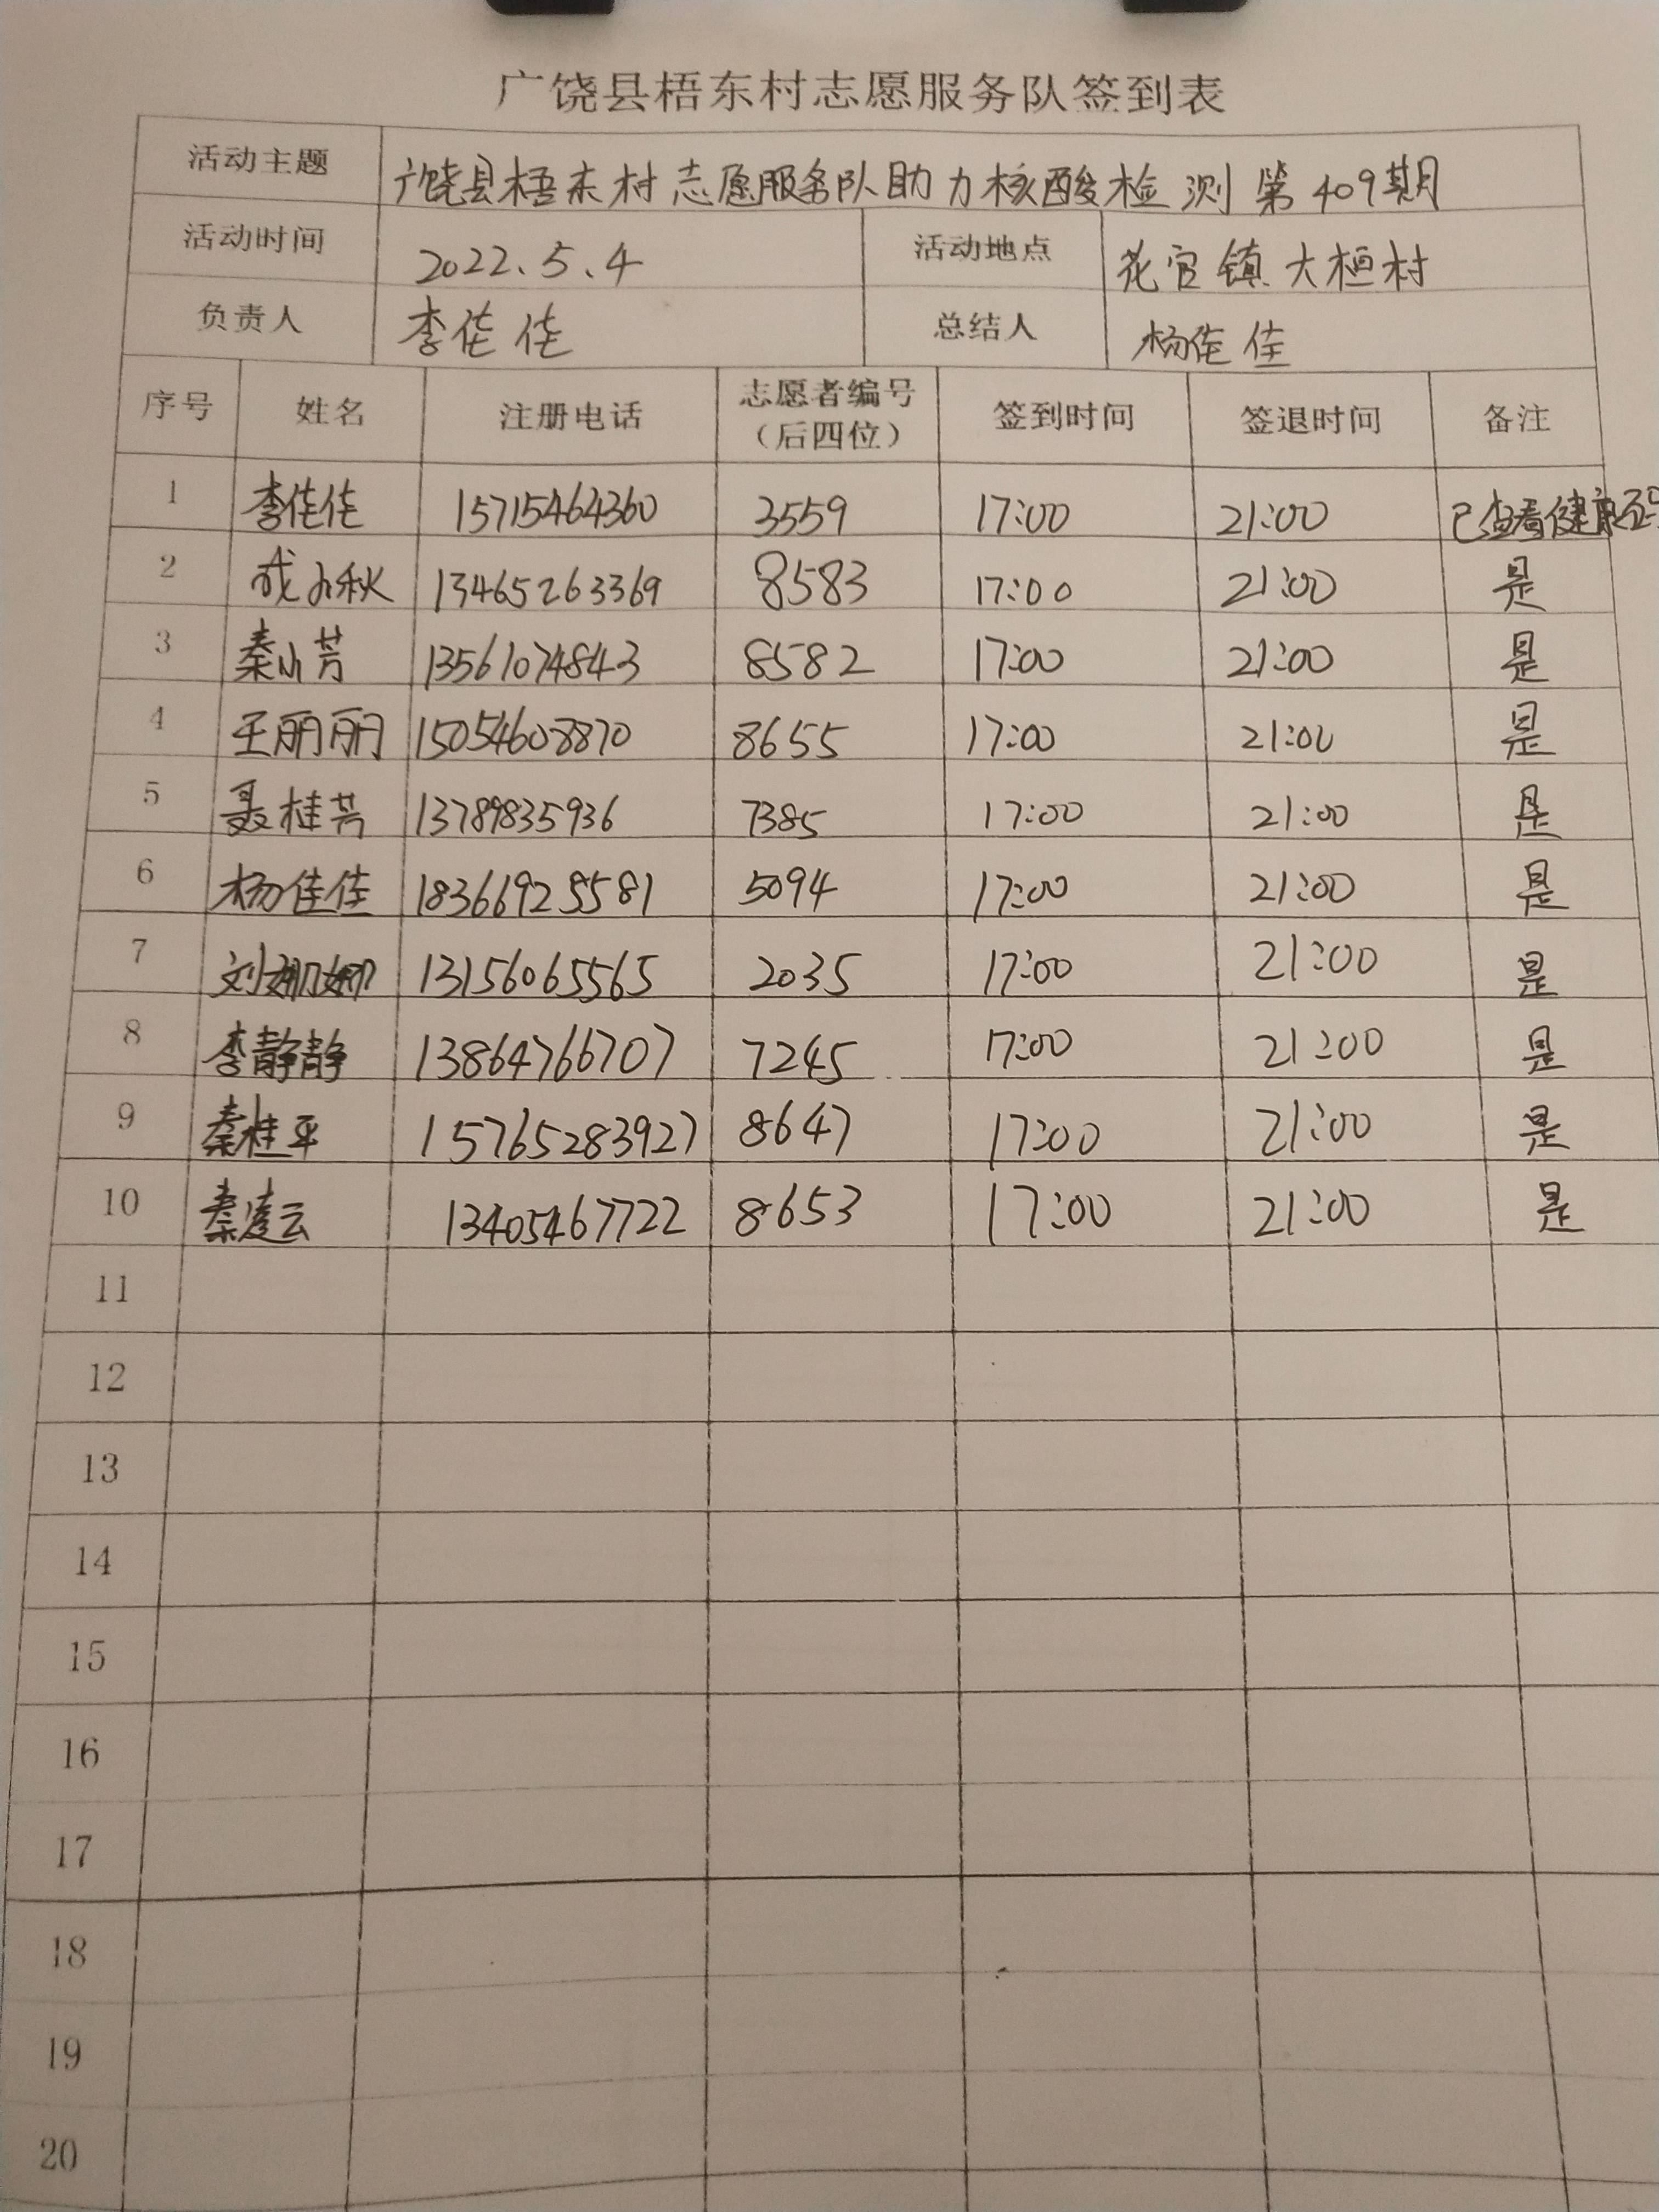 广饶县梧东村志愿服务队签到表
活动主题 广饶县梧东村志愿服务队助力核酸检测第409期
活动时间 2022.5.4 活动地点 花官镇大桓村
负责人 李佳佳 总结人 杨佳佳
序号 姓名 注册电话 志愿者编号（后四位） 签到时间 签退时间 备注
1 李佳佳 15715464360 3559 17:00 21:00 已查看健康码
2 成小秋 13465263369 8583 17:00 21:00 是
3 秦小芳 13561074843 8582 17:00 21:00 是
4 王丽丽 15054608870 8655 17:00 21:00 是
5 聂桂芳 13789835936 7385 17:00 21:00 是
6 杨佳佳 18366925581 5094 17:00 21:00 是
7 刘娜娜 13156065565 2035 17:00 21:00 是
8 李静静 13864766707 7245 17:00 21:00 是
9 秦桂平 15765283927 8647 17:00 21:00 是
10 秦凌云 13405467722 8653 17:00 21:00 是
11
12
13
14
15
16
17
18
19
20